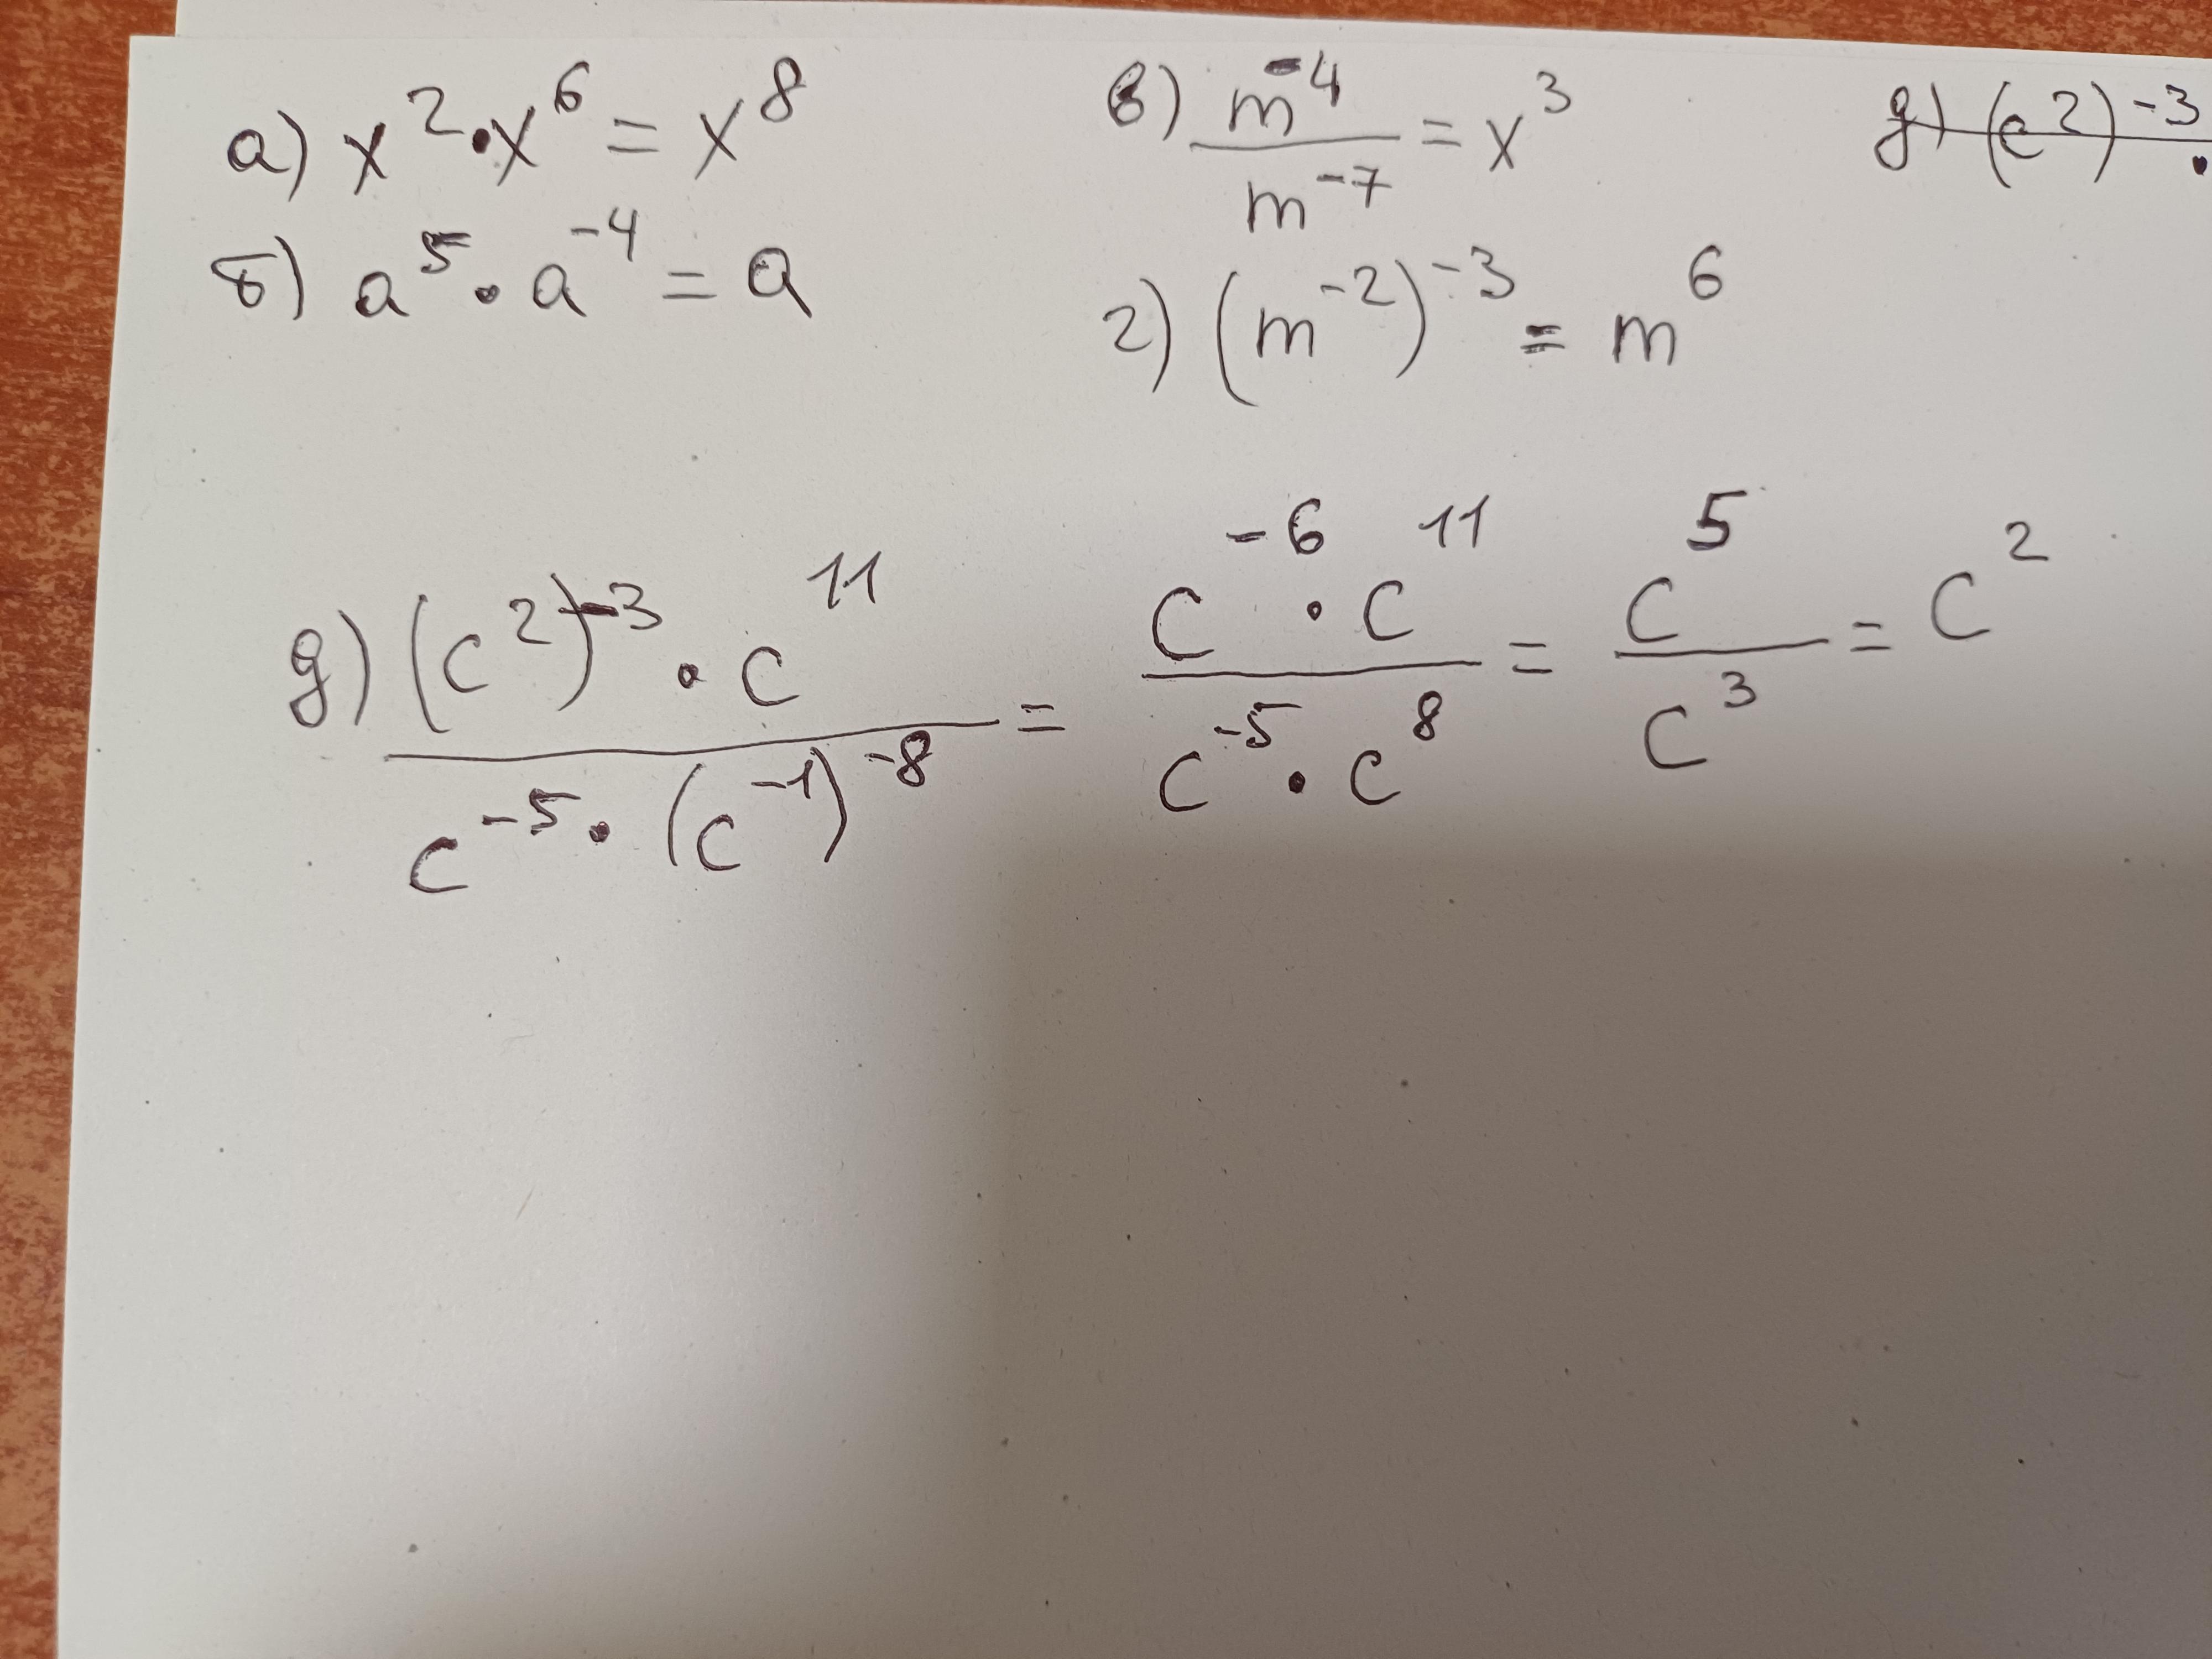 а) x² · x⁶ = x⁸
б) a⁵ · a⁻⁴ = a
в) m⁻⁴ / m⁻⁷ = x³
г) (m⁻²)⁻³ = m⁶
д) (c²)⁻³ ·
д) ((c²)⁻³ · c¹¹) / (c⁻⁵ · (c⁻¹)⁻⁸) = (c⁻⁶ · c¹¹) / (c⁻⁵ · c⁸) = c⁵ / c³ = c²